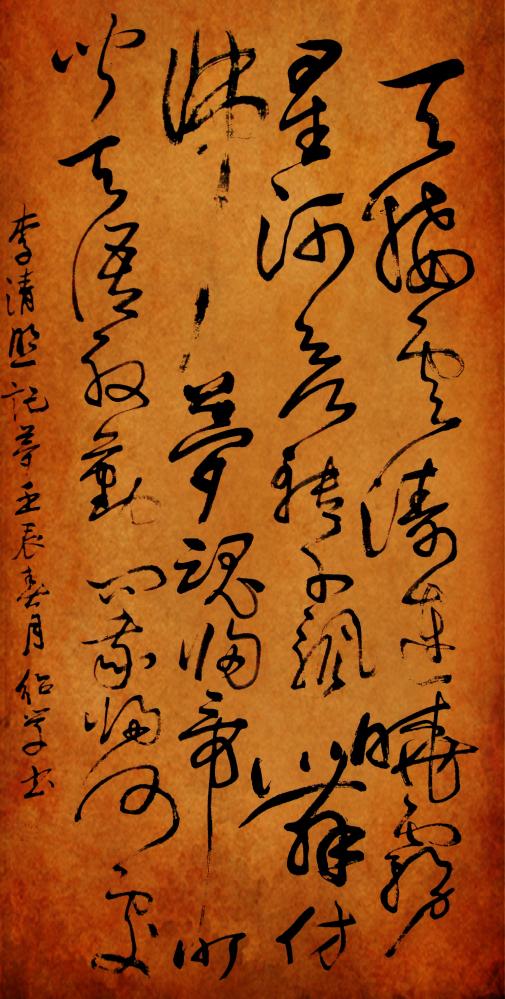 天接雲濤連曉霧
星河欲轉千帆舞仿
佛夢魂歸帝所
聞天語殷勤問我歸何處
李清照記夢壬辰春月紹書